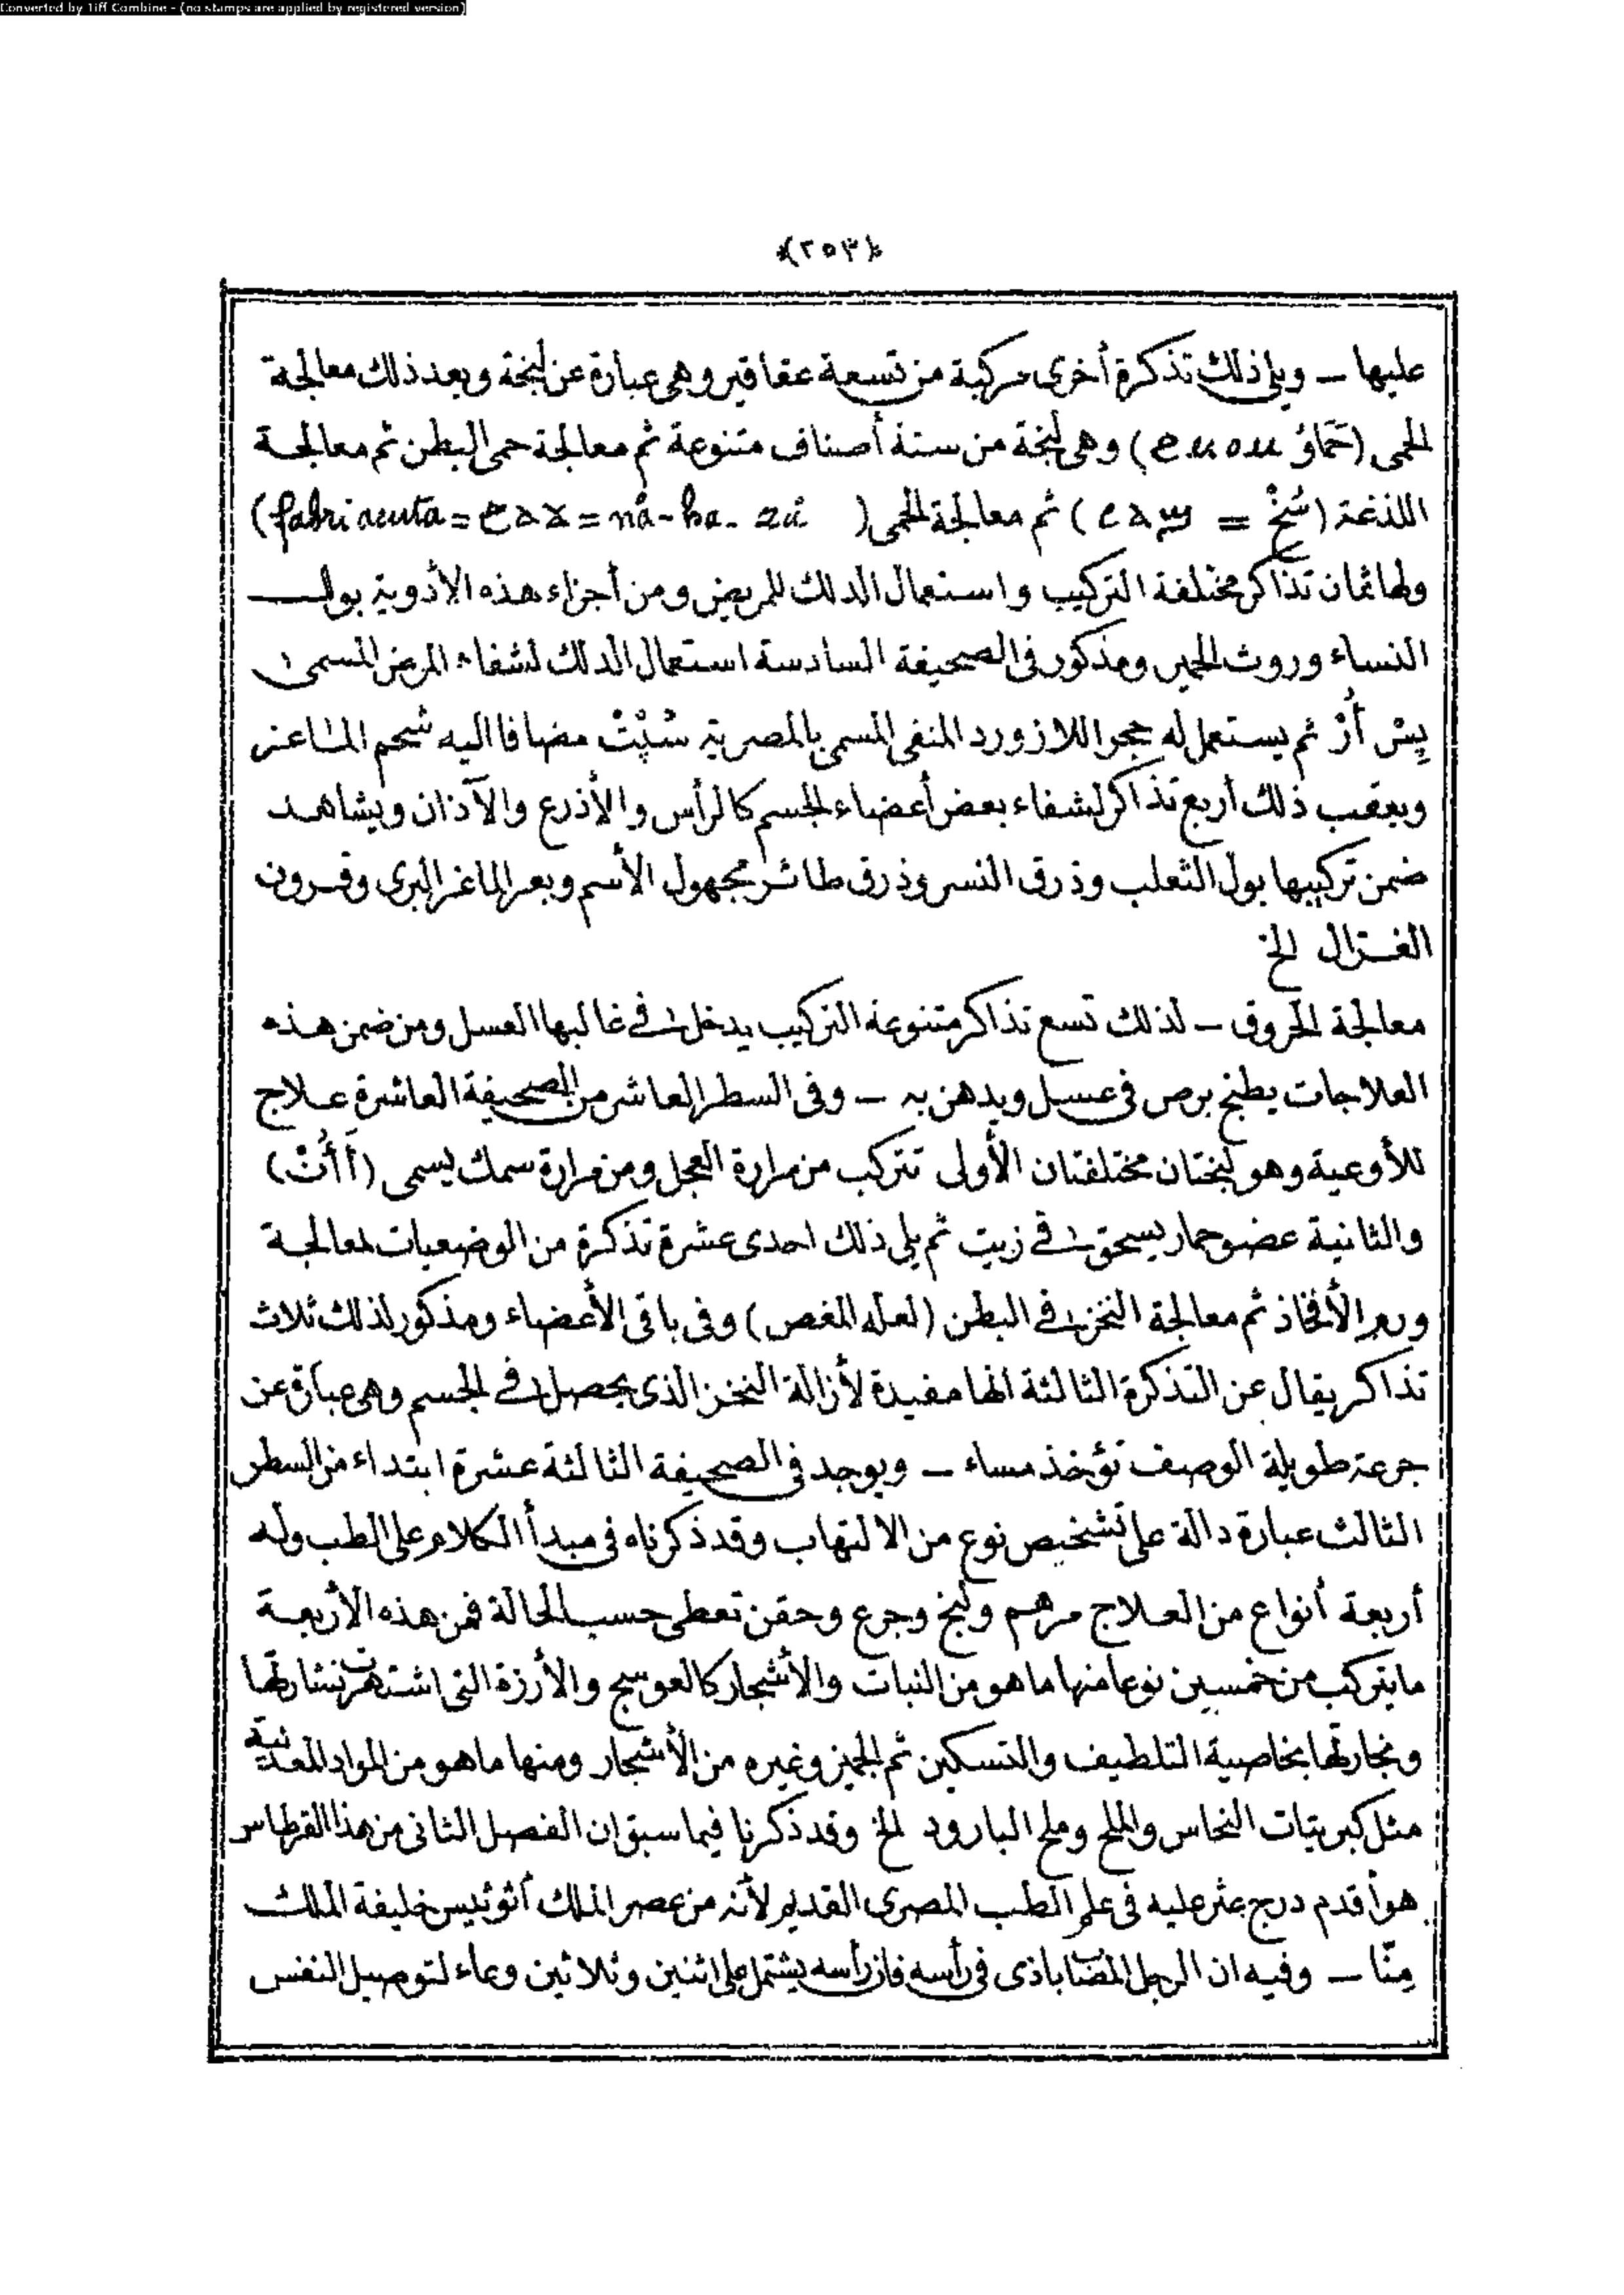 Converted by Tiff Combine - (no stamps are applied by registered version)
﴿٢٥٣﴾
عليها – ويلى ذلك تذكرة أخرى مركبة من تسعة عقاقير وهى عبارة عن لبخة وبعد ذلك معالجة
الحمى (حَمَاوُ) وهى لبخة من ستة أصناف متنوعة ثم معالجة حمى البطن ثم معالجة
اللذغة (سُخْ =) ثم معالجة الحمى (fabri acuta = = nâ-ha-zû)
ولها ثمان تذاكر مختلفة التركيب واستعمال الدلك للمريض ومن أجزاء هذه الأدوية بول
النساء وروث الحمير ومذكور فى الصحيفة السادسة استعمال الدلك لشفاء المرض المسمى
بِسْ أُرْ ثم يستعمل له حجر اللازورد المنفى المسمى بالمصرية سُپْتْ مضافا اليه شحم الماعز
ويعقب ذلك أربع تذاكر لشفاء بعض أعضاء الجسم كالرأس والأذرع والآذان ويشاهد
ضمن تركيبها بول الثعلب وذرق النسر وذرق طائر مجهول الأسم وبعر الماغر البرى وقرون
الغزال الخ
معالجة الحروق – لذلك تسع تذاكر متنوعة التركيب يدخل فى غالبها العسل ومن ضمن هذه
العلاجات يطبخ برص فى عسل ويدهن به – وفى السطر العاشر من الصحيفة العاشرة علاج
للأوعية وهو لبختان مختلفتان الأولى تتركب من مرارة العجل ومن مرارة سمك يسمى (أَأُتْ)
والثانية عضو حمار يسحق فى زيت ثم يلى ذلك احدى عشرة تذكرة من الوضعيات لمعالجة
ورم الأفخاذ ثم معالجة النخز فى البطن (لعله المغص) وفى باقى الأعضاء ومذكور لذلك ثلاث
تذاكر يقال عن التذكرة الثالثة انها مفيدة لأزالة النخز الذى يحصل فى الجسم وهى عبارة عن
جرعة طويلة الوصف تؤخذ مساء – ويوجد فى الصحيفة الثالثة عشرة ابتداء من السطر
الثالث عبارة دالة على تشخيص نوع من الالتهاب وقد ذكرناه فى مبدأ الكلام على الطب وله
أربعة أنواع من العلاج مرهم ولبخ وجرع وحقن تعطى حسب الحالة فمن هذه الأربعة
ما يتركب من خمسين نوعا منها ما هو من النبات والأشجار كالعوسج والأرزة التى اشتهرت نشارتها
ونجارتها بخاصية التلطيف والتسكين ثم الجميز وغيره من الأشجار ومنها ما هو من المواد المعدنية
مثل كبريتات النحاس والملح وملح البارود الخ وقد ذكرنا فيما سبق ان الفصل الثانى من هذا القرطاس
هو أقدم درج عثر عليه فى علم الطب المصرى القديم لأنه من عصر الملك أثوئيس خليفة الملك
مِنّا – وفيه ان الرجل المصاب اذى فى رأسه فان رأسه يشتمل على اثنين وثلاثين وعاء لتوصيل النفس